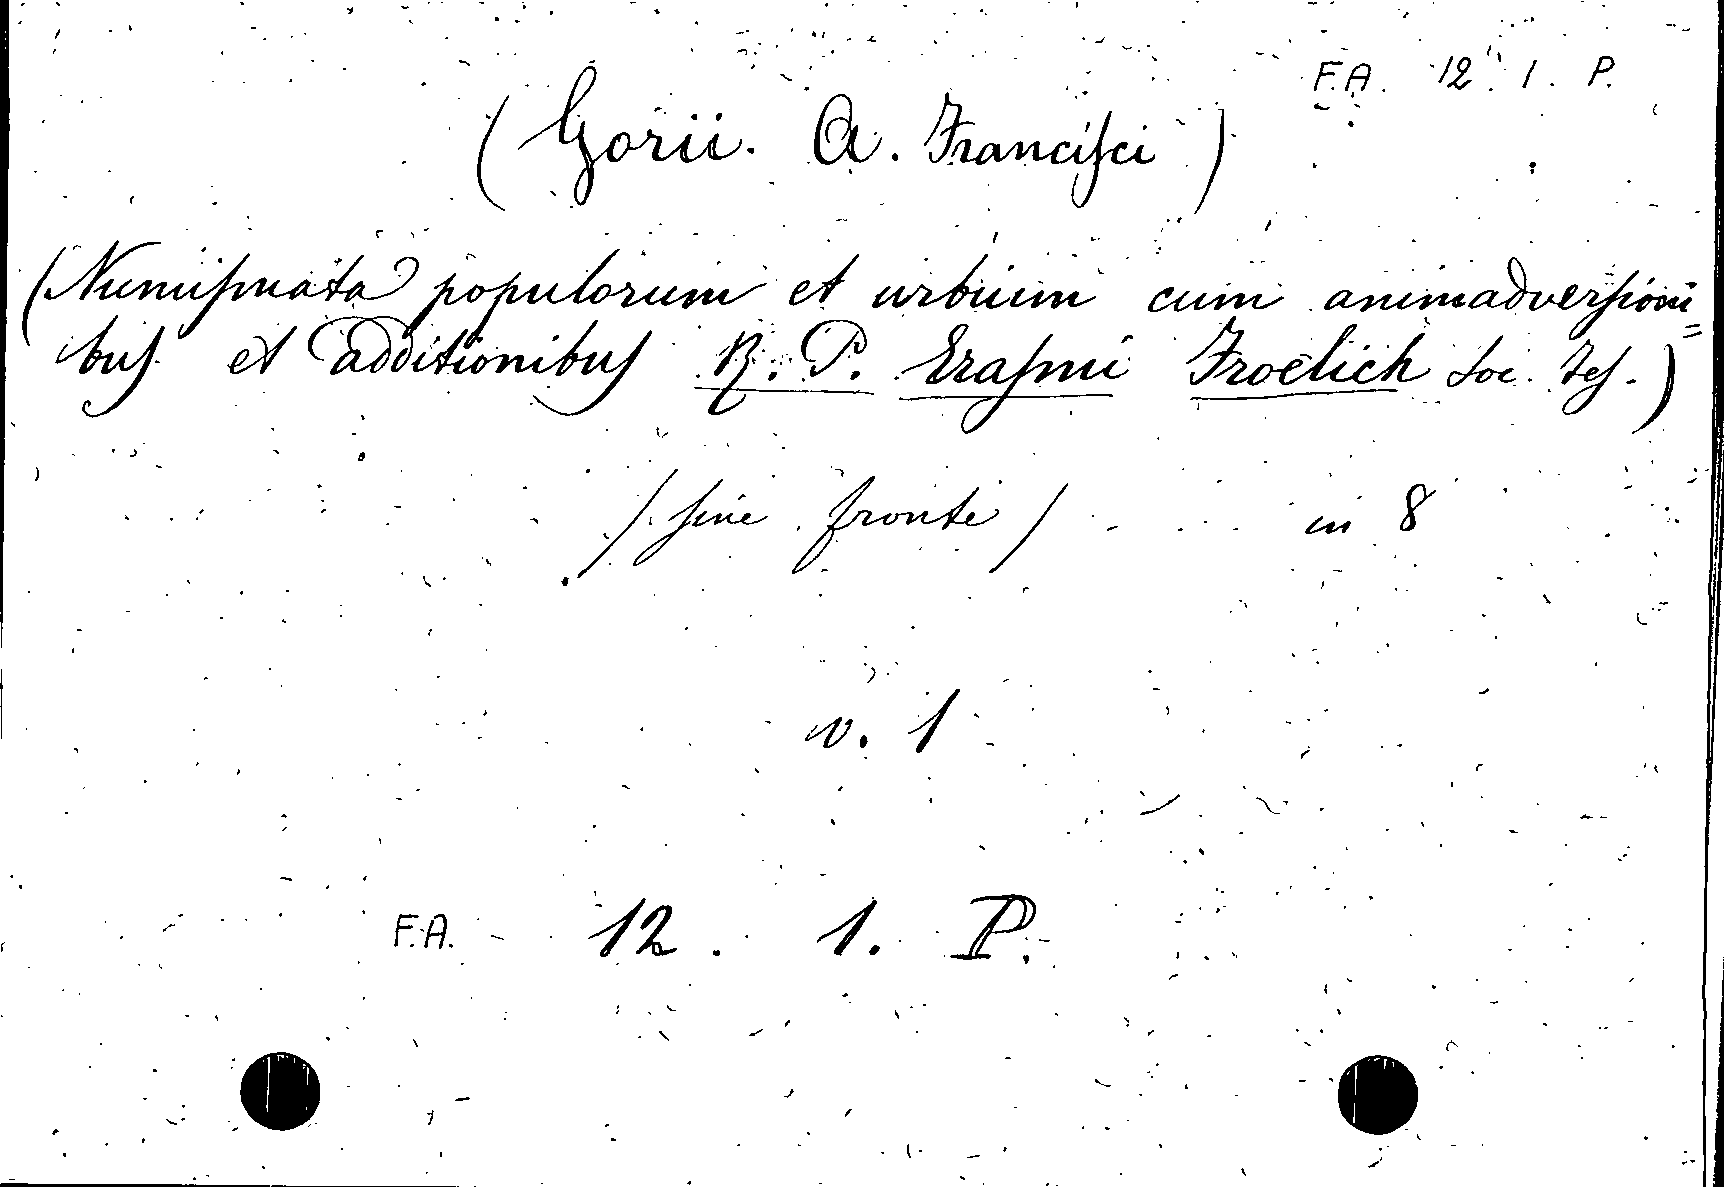 F.A. 12. 1. P.
(Gorii. A. Francisci)
(Numismata populorum et urbium cum animadversioni=
bus et additionibus R. P. Erasmi Froelich Soc. Jes.)
/ sine fronte / in 8
v. 1
F.A. 12. 1. P.